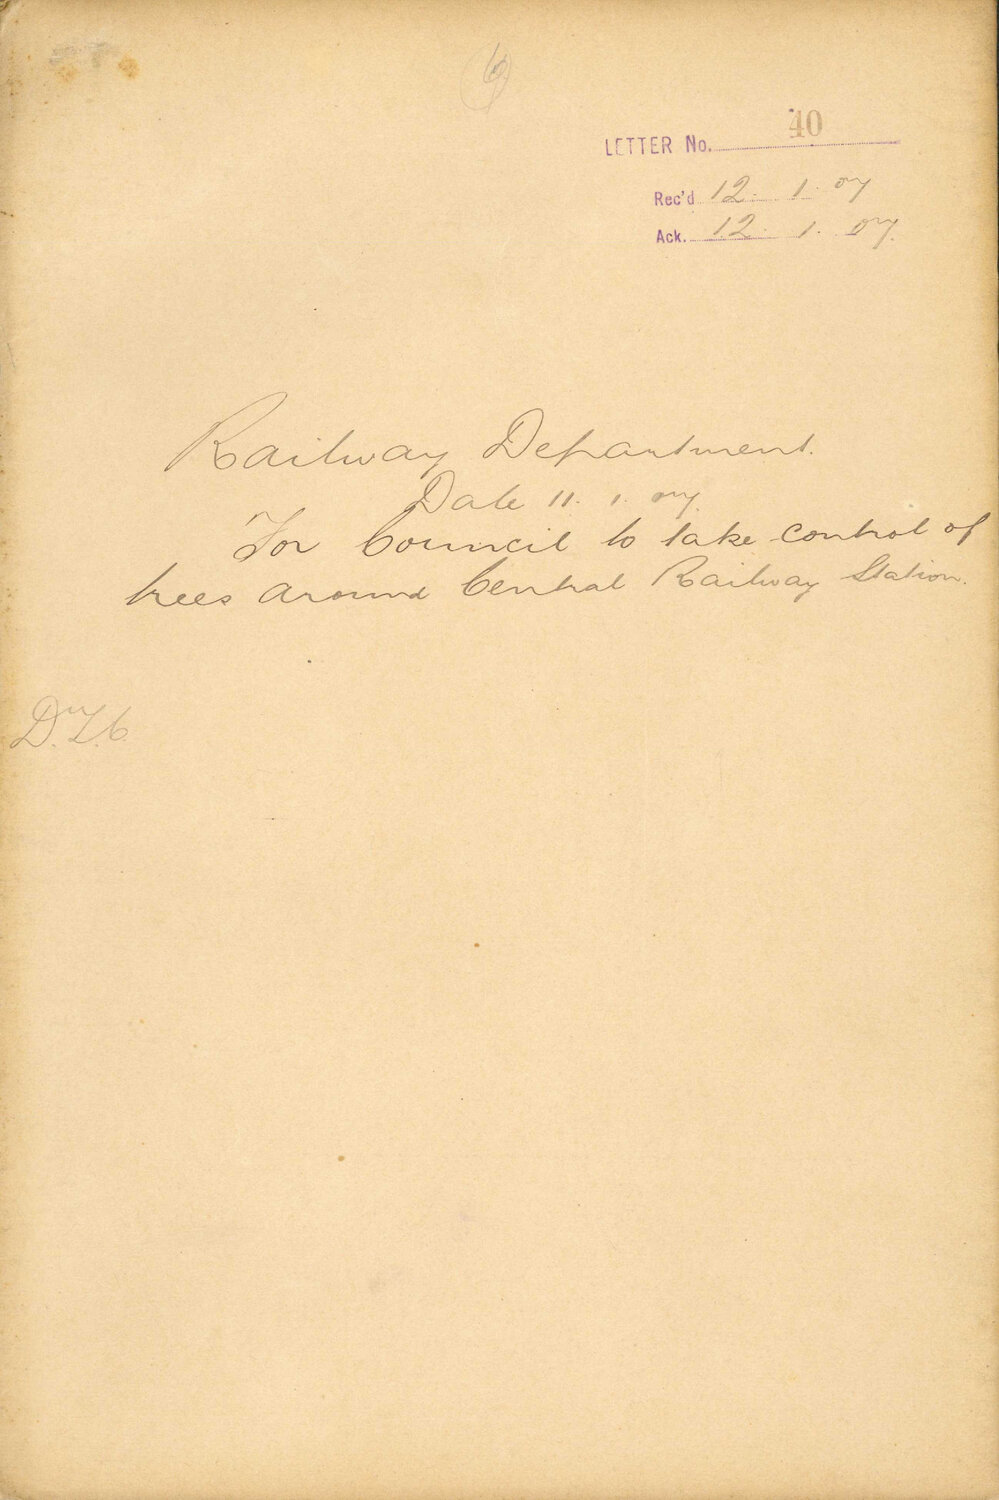 LETTER No. 40
Rec'd 12. 1. 07
Ack. 12. 1. 07.
Railway Department.
Date 11. 1. 07.
For Council to take control of
trees around Central Railway Station.